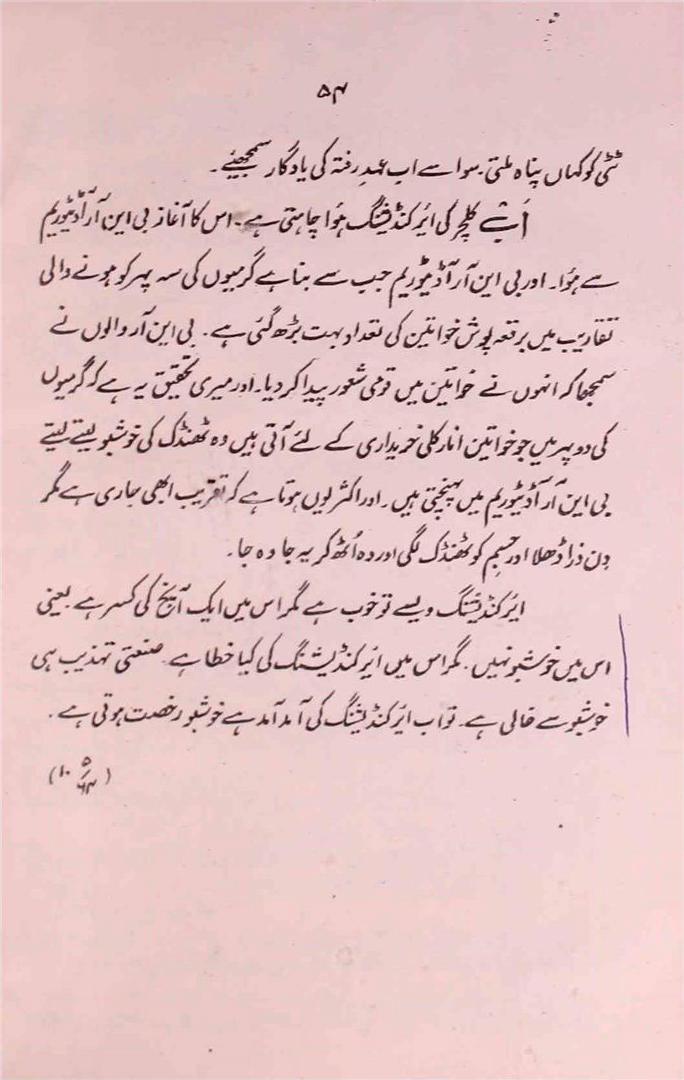 ۵۴
ٹٹی کو کہاں پناہ ملتی۔ سو اسے اب عہدِ رفتہ کی یادگار سمجھئے۔
کلچر کی ایر کنڈیشنگ ہوُا چاہتی ہے۔ اس کا آغاز بی این آر آڈیٹوریم
سے ہوُا۔ اور بی این آر آڈیٹوریم جب سے بنا ہے گرمیوں کی سہ پہر کو ہونے والی
تقاریب میں برقعہ پوش خواتین کی تعداد بہت بڑھ گئی ہے۔ بی این آر والوں نے
سمجھا کہ انہوں نے خواتین میں قومی شعور پیدا کر دیا۔ اور میری تحقیق یہ ہے کہ گرمیوں
کی دوپہر میں جو خواتین انارکلی خریداری کے لئے آتی ہیں وہ ٹھنڈک کی خوشبو لیتے لیتے
بی این آر آڈیٹوریم میں پہنچتی ہیں۔ اور اکثر یوں ہوتا ہے کہ تقریب ابھی جاری ہے مگر
دِن ذرا ڈھلا اور جسم کو ٹھنڈک لگی اور وہ اُٹھ کر یہ جا وہ جا۔
ایر کنڈیشنگ ویسے تو خوب ہے مگر اس میں ایک آنچ کی کسر ہے۔ یعنی
اس میں خوشبو نہیں۔ مگر اس میں ایر کنڈیشنگ کی کیا خطا ہے۔ صنعتی تہذیب ہی
خوشبو سے خالی ہے۔ تو اب ایر کنڈیشنگ کی آمد آمد ہے خوشبو رخصت ہوتی ہے۔
(۱۰ ۵/۶۴)